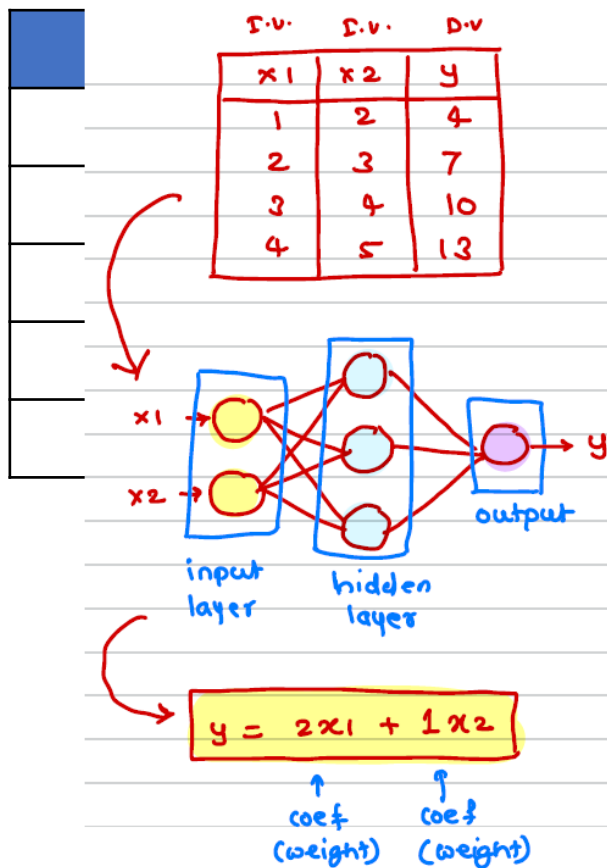 I.V. I.V. D.V
x1 x2 y
1 2 4
2 3 7
3 4 10
4 5 13
x1
x2
y
input
layer
hidden
layer
output
y = 2x1 + 1x2
coef coef
(weight) (weight)